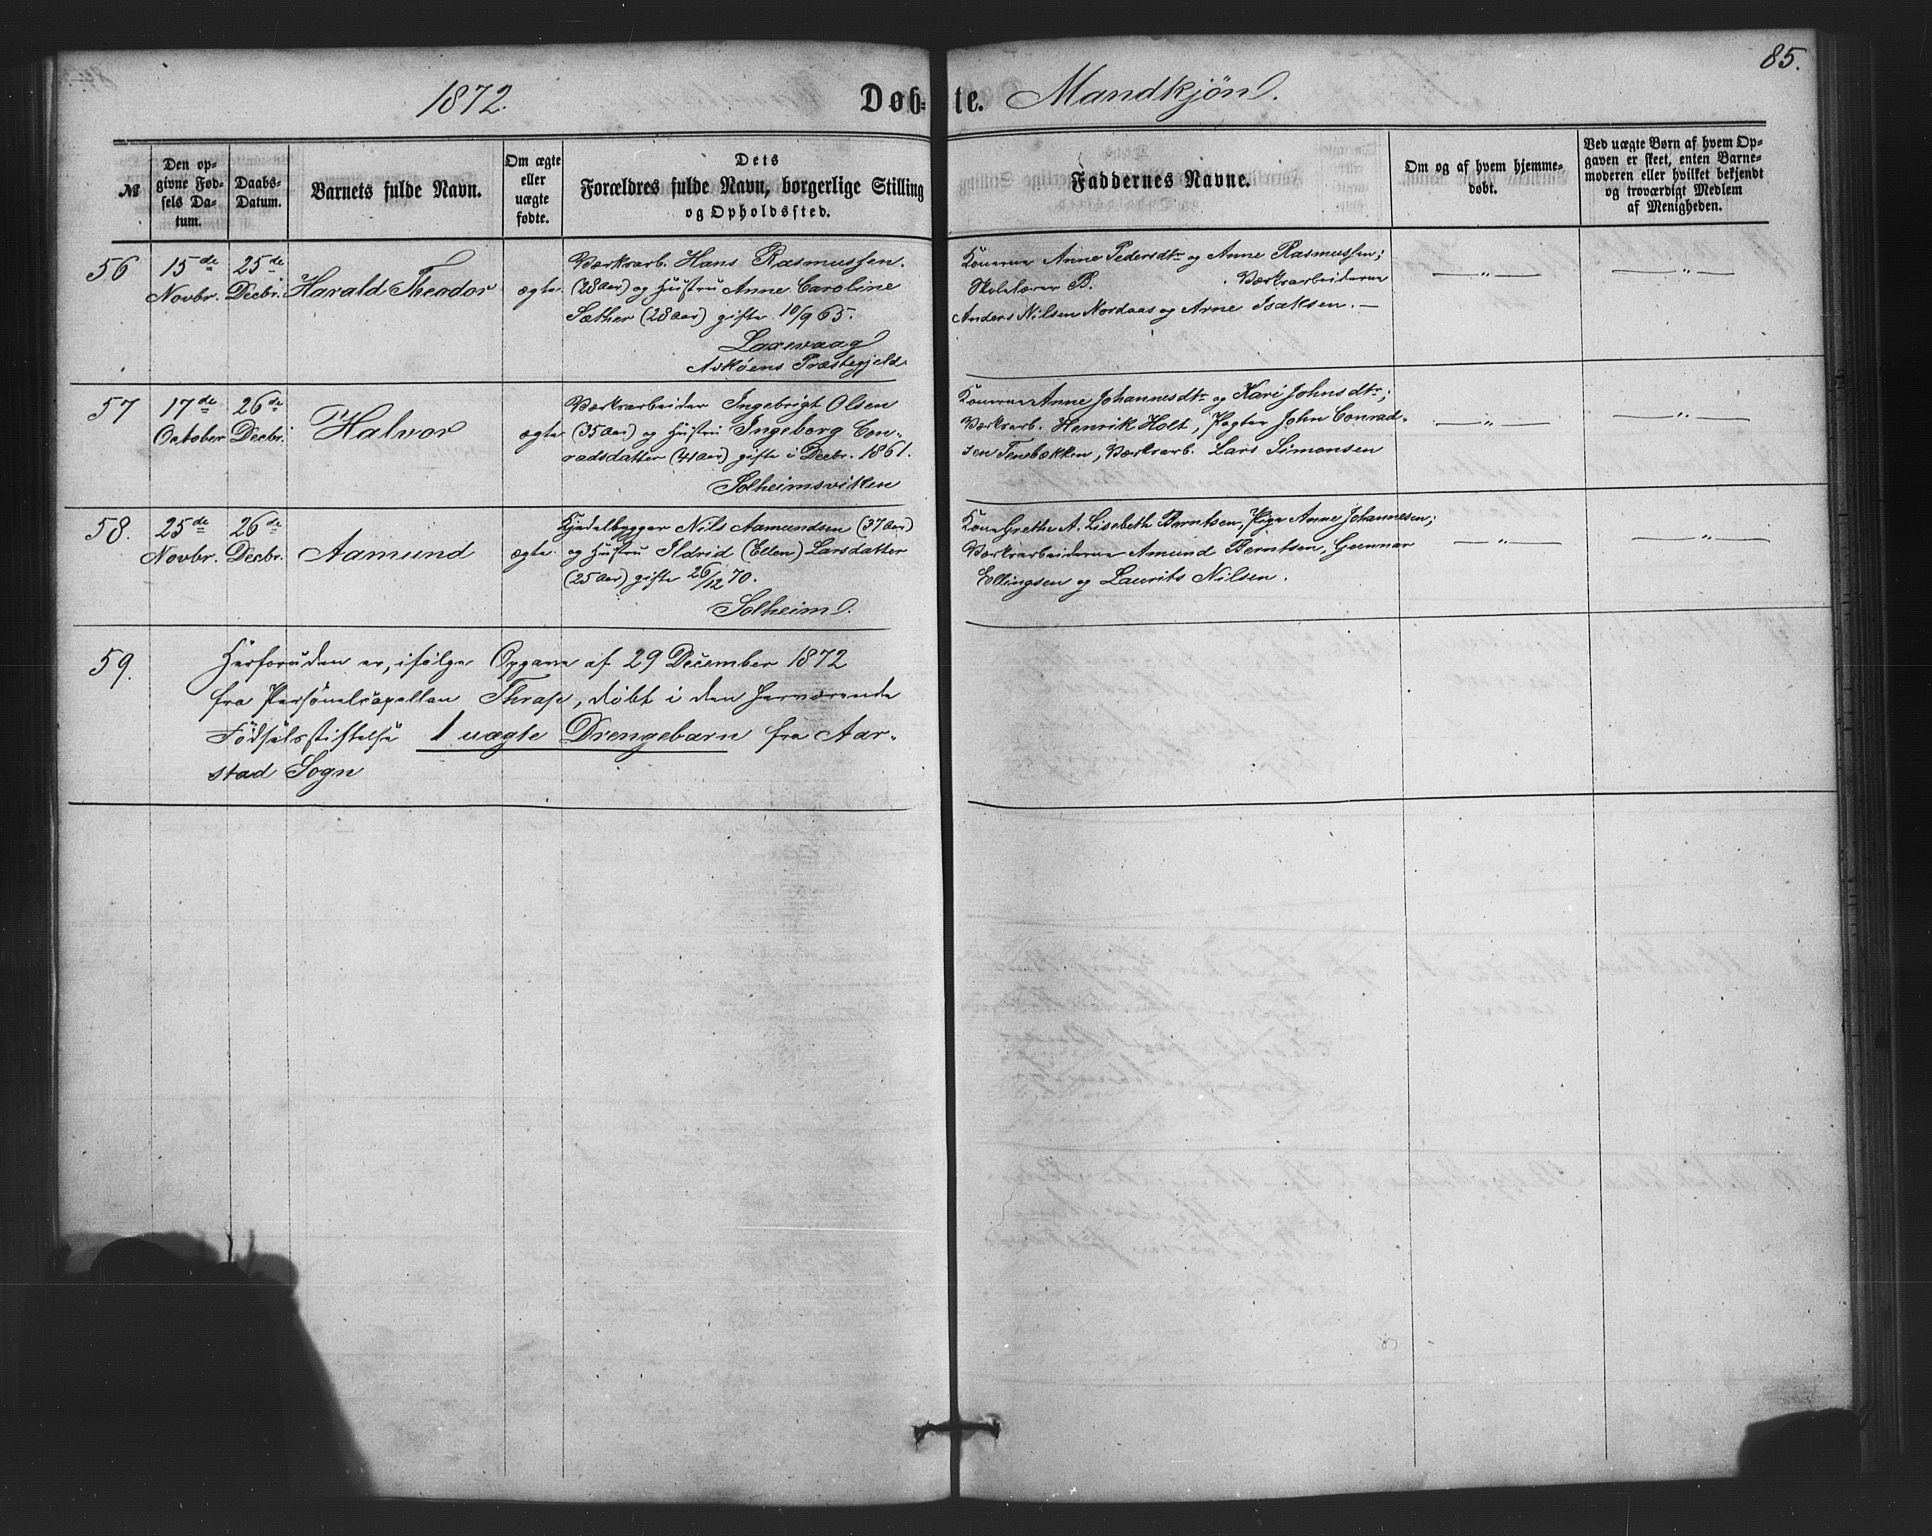 85.
1872. Døb- te. Mandkjøn.
№
Den op-
givne Fød-
sels Da-
tum.
Daabs-
Datum.
Barnets fulde Navn.
Om ægte
eller
uægte
fødte.
Dets
Forældres fulde Navn, borgerlige Stilling
og Opholdssted.
Faddernes Navne.
Om og af hvem hjemme-
døbt.
Ved uægte Børn af hvem Op-
gaven er skeet, enten Barne-
moderen eller hvilket bekjendt
og troværdigt Medlem
af Menigheden.
56
15de
Novbr.
25de
Decbr.
Harald Theodor
ægte.
Værksarb. Hans Rasmussen.
(28 Aar) og Hustru Anne Caroline
Sæther (28 Aar) gifte 10/9 65.
Laxevaag
Askøens Præstegjeld.
Konerne Anne Pedersdtr og Anne Rasmussen;
Skolelærer B. . Værksarbeiderne
Anders Nilsen Nordaas og Arne Isaksen. —
— " —
— " —
57
17de
October
26de
Decbr.
Halvor
ægte.
Værksarbeider Ingebrigt Olsen
(35 Aar) og Hustru Ingeborg Con-
radsdatter (41 Aar) gifte i Decbr. 1861.
Solheimsviken
Konerne Anne Johannesdtr og Kari Johnsdtr;
Værksarb. Henrik Holt, Pagter John Conrad-
sen Tenbækken, Værksarb. Lars Simonsen
— " —
— " —
58.
25de
Novbr.
26de
Decbr.
Aamund
ægte.
Kjedelbygger Nils Aamundsen (37 Aar)
og Hustru Ildrid (Ellen) Larsdatter
(25 Aar) gifte 26/12 70.
Solheim.
Kone Grethe A. Lisebeth Berntsen, Pige Anne Johannesen;
Værksarbeiderne Amund Berntsen, Gunnar
Ellingsen og Laurits Nilsen.
— " —
— " —
59.
Herforuden er, ifølge Opgave af 29 December 1872
fra Personelcapellan Thrap, døbt i den herværende
Fødselsstiftelse 1 uægte Drengebarn fra Aar-
stad Sogn